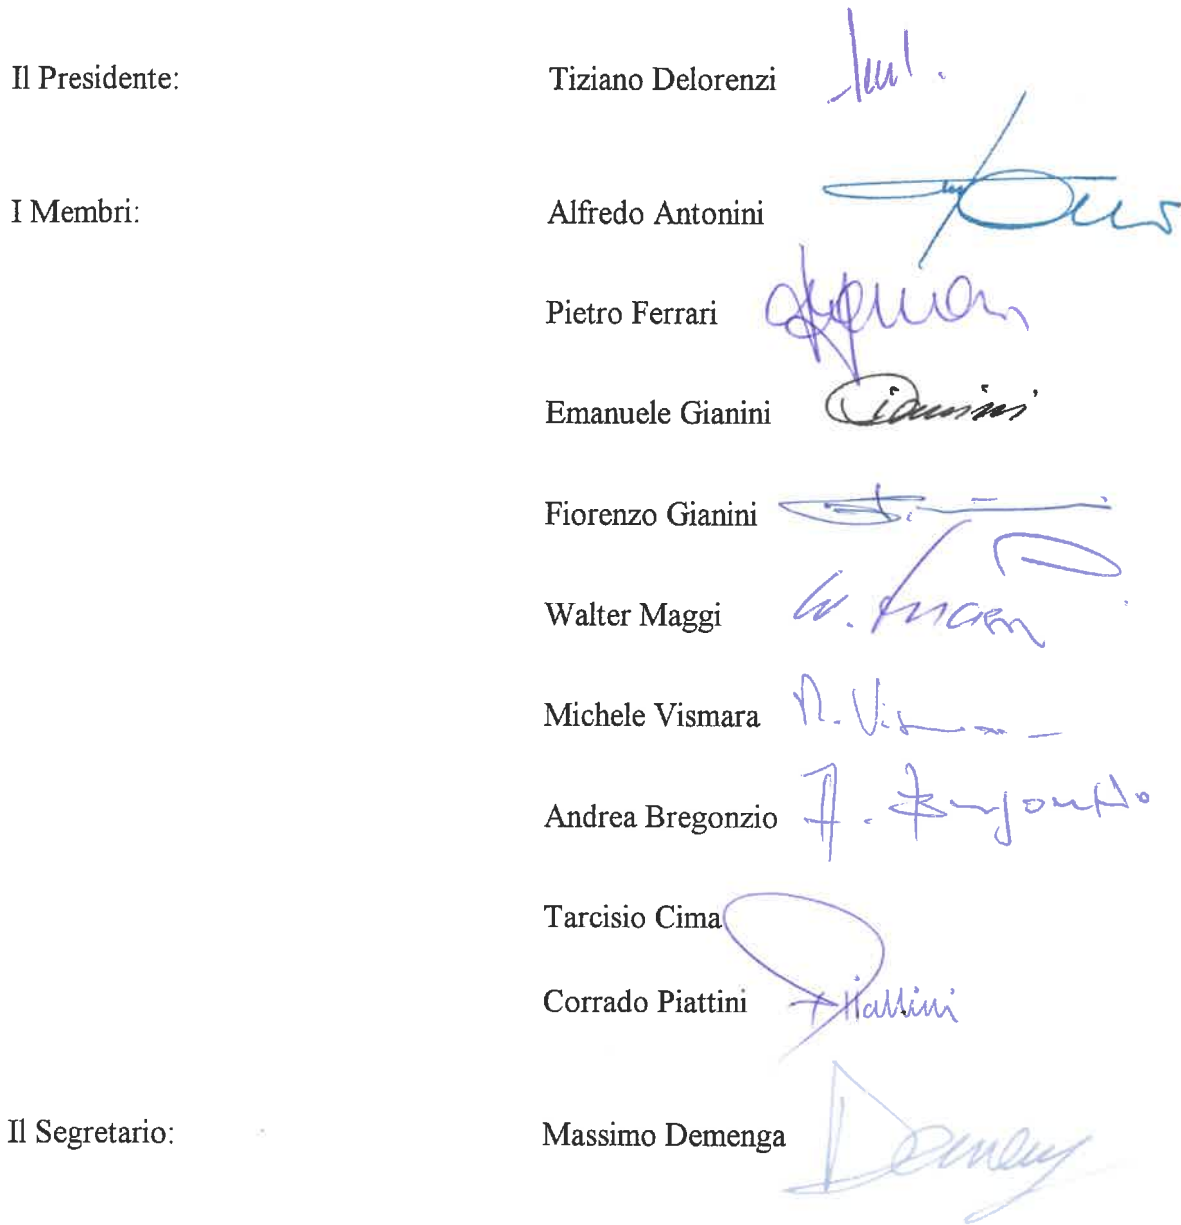 Il Presidente: Tiziano Delorenzi
I Membri: Alfredo Antonini
Pietro Ferrari
Emanuele Gianini Gianini
Fiorenzo Gianini
Walter Maggi
Michele Vismara
Andrea Bregonzio A. Bregonzio
Tarcisio Cima
Corrado Piattini Piattini
Il Segretario: Massimo Demenga